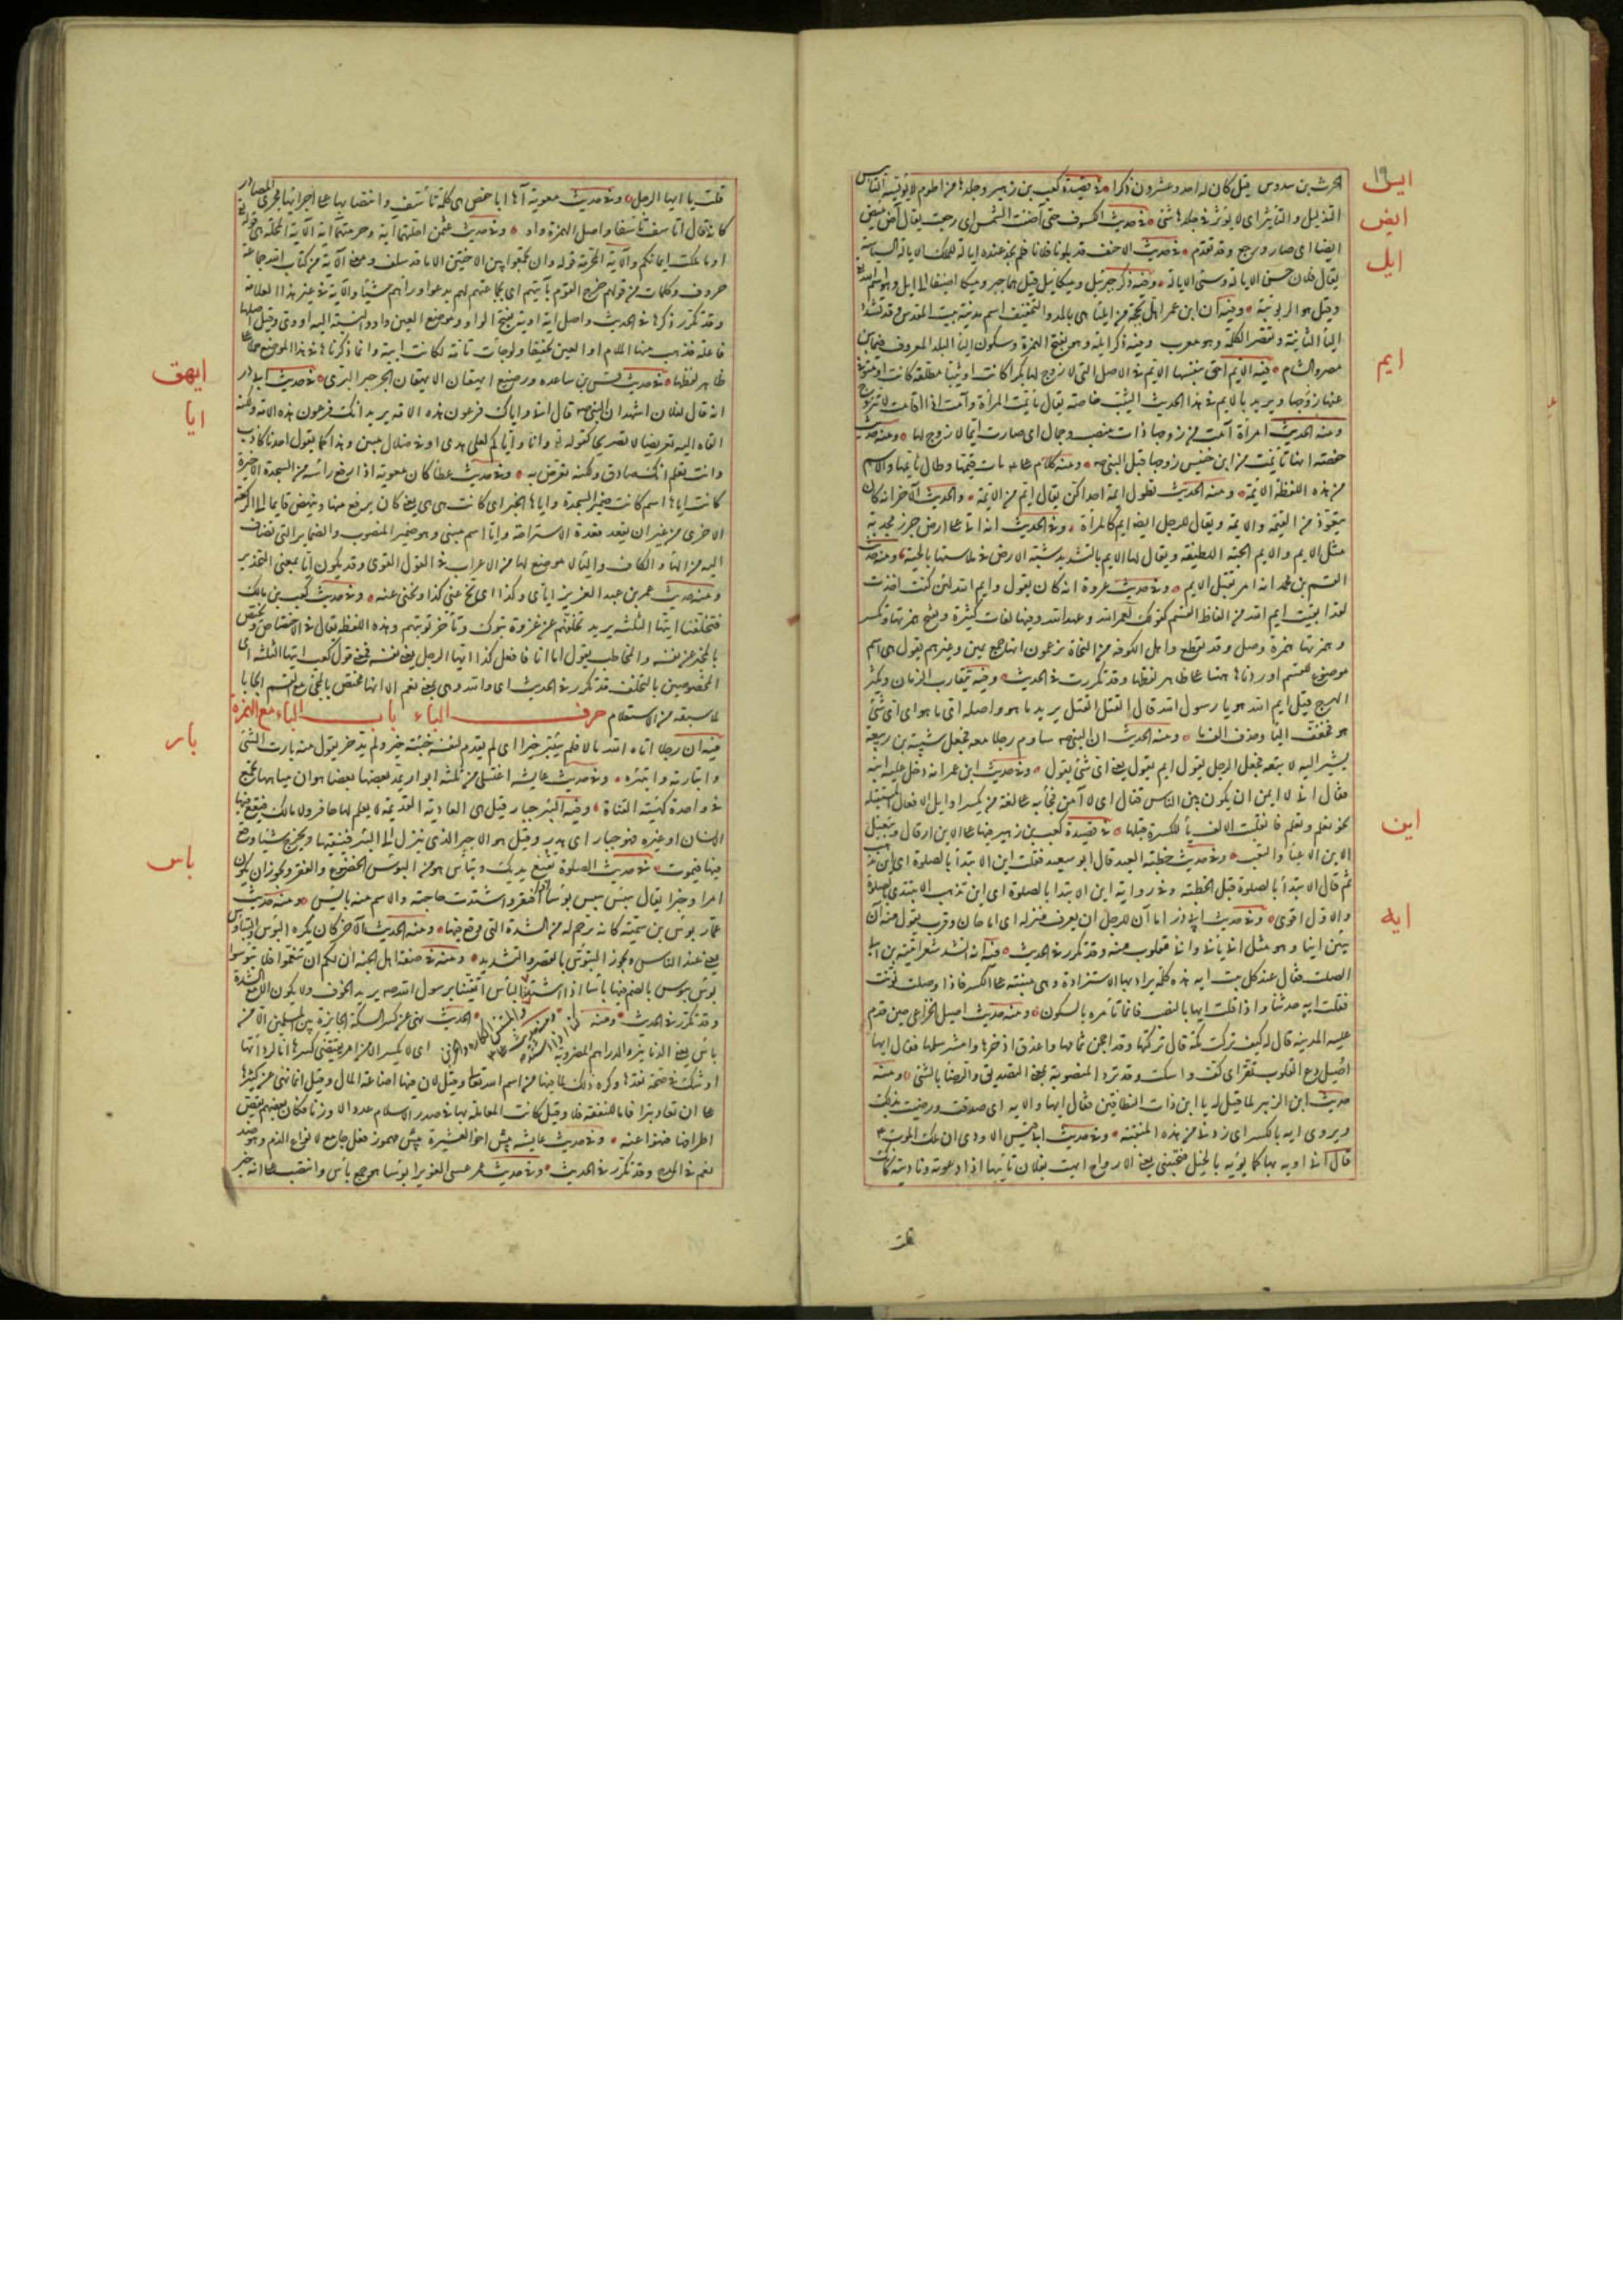 ١٩
ايس
الحرث بن سدوس قيل كان له احد وعشرون ذكرا في قصيدة كعب بن زهير وجلدها من اطوم لا يؤيسه التأييس
ايض
التذليل والتأثير اى لا يؤثر في جلدها شئ في حديث الكسوف حتى آضت الشمس اى رجعت يقال آض يئيض
ايل
ايضا اى صار ورجع وقد تقدم في حديث الاحنف قد بلونا فلانا فلم نجد عنده ايالة للملك الايالة السياسة
يقال فلان حسن الايالة وسيئ الايالة وفيه ذكر جبرئيل وميكائيل قيل هما جبر وميكا اضيفا الى ايل وهو اسم الله
وقيل هو الربوبية وفيه ان ابن عمر اهل بحجة من ايلياء هى بالمد والتخفيف اسم مدينة بيت المقدس وقد تشدد
الياء الثانية وتقصر الكلمة وهو معرب وفيه ذكر ايلة وهو بفتح الهمزة وسكون الياء البلد المعروف فيما بين
ايم
مصر والشام فيه الايم احق بنفسها الايم في الاصل التى لا زوج لها بكرا كانت او ثيبا مطلقة كانت او متوفى
عنها زوجها ويريد بالايم في هذا الحديث الثيب خاصة يقال تأيمت المرأة وآمت اذا اقامت لا تتزوج
ومنه الحديث امرأة آمت من زوجها ذات منصب وجمال اى صارت ايما لا زوج لها ومنه حديث
حفصة انها تأيمت من ابن خنيس زوجها قبل النبى ومنه كلام على مات قيمها وطال تأيمها والاسم
من هذه اللفظة الايمة ومنه الحديث تطول ايمة احداكن يقال ايم من الايمة والحديث الآخر انه كان
يتعوذ من العيمة والايمة ويقال للرجل ايضا ايم كالمرأة وفي الحديث انه اتى على ارض جرز مجدبة
مثل الايم والايم الحية اللطيفة ويقال لها الايم بالتشديد شبه الارض في ملاستها بالحية ومنه حديث
القسم بن محمد انه امر بقتل الايم وفي حديث عروة انه كان يقول وايم الله لئن كنت اخذت
لقد ابقيت ايم الله من الفاظ القسم كقولك لعمر الله وعهد الله وفيها لغات كثيرة وتفتح همزتها وتكسر
وهمزتها همزة وصل وقد تقطع واهل الكوفة من النحاة يزعمون انها جمع يمين وغيرهم يقول هى اسم
موضوع للقسم اوردناها ههنا على ظاهر لفظها وقد تكررت في الحديث وفيه يتقارب الزمان ويكثر
الهرج قيل ايم الله هو يا رسول الله قال القتل القتل يريد ما هو واصله اى ما هو اى اى شئ
هو فخفف الياء وحذف الف ما ومنه الحديث ان النبى ساوم رجلا معه فجعل شيبة بن ربيعة
يشير اليه لا يبعه فجعل الرجل يقول ايم يقول يعنى اى شئ يقول وفي حديث ابن عمر انه دخل عليه ابنه
فقال انى لا ايمن ان يكون بين الناس قتال اى لا آمن فجاء به على لغة من يكسر اوايل الافعال المستقبلة
اين
نحو نعلم وتعلم فانقلبت الالف ياء للكسرة قبلها في قصيدة كعب بن زهير فيها على الاين ارقال وتبغيل
الاين الاعياء والتعب وفي حديث خطبة العيد قال ابو سعيد فقلت اين الابتداء بالصلوة اى اين تذهب
ثم قال الابتداء بالصلوة قبل الخطبة وفي رواية اين الابتدا بالصلوة اى اين تذهب الا تبتدئ بالصلوة
والاول اقوى وفي حديث ابى ذر اما آن للرجل ان يعرف منزله اى اما حان وقرب يقول منه آن
ايه
يئين اينا وهو مثل انى يأنى وانى مقلوب منه وقد تكرر في الحديث فيه انه انشد شعر امية بن ابى
الصلت فقال عند كل بيت ايه هذه كلمة يراد بها الاستزادة وهى مبنية على الكسر فاذا وصلت نونت
فقلت ايه حدثنا واذا قلت ايها بالنصب فانما تأمره بالسكون ومنه حديث اصيل الخزاعى حين قدم
عليه المدينة قال له كيف تركت مكة قال تركتها وقد احجن ثمامها واعذق اذخرها وامشر سلمها فقال ايها
اصيل دع القلوب تقر اى كف واسكت وقد ترد المنصوبة بمعنى التصديق والرضا بالشئ ومنه
حديث ابن الزبير لما قيل له يا ابن ذات النطاقين فقال ايها والاله اى صدقت ورضيت بذلك
ويروى ايه بالكسر اى زدنى من هذه المنقبة وفي حديث ابى قيس الاودى ان ملك الموت ع
قال انى اويه بها كما يؤيه بالخيل فتجيبنى يعنى الارواح ايهت بفلان تأييها اذا دعوته وناديته كانك
قلت يا ايها الرجل وفي حديث معوية آها ابا حفص هى كلمة تأسف وانتصابها على اجرائها مجرى المصادر
كانه قال اتأسف تأسفا واصل الهمزة واو وفي حديث عثمن احلتهما آية وحرمتهما آية الآية المحلة هى قوله تع
او ما ملكت ايمانكم والآية المحرمة قوله وان تجمعوا بين الاختين الا ما قد سلف ومعنى الآية من كتاب الله جماعة
حروف وكلمات من قولهم خرج القوم بآيتهم اى بجماعتهم لم يدعوا وراءهم شيئا والآية في غير هذا العلامة
وقد تكرر ذكرها في الحديث واصل آية اوية بفتح الواو وموضع العين واو والنسبة اليه اووى وقيل اصلها
فاعلة فذهب منها اللام او العين تخفيفا ولو جاءت تامة لكانت آيية وانما ذكرناها في هذا الموضع حملا على
ايهق
ظاهر لفظها في حديث قس بن ساعدة ورضيع ايهقان الايهقان الجرجير البرى في حديث ابى ذر
ايا
انه قال لفلان اشهد ان النبى قال انى واياك فرعون هذه الامة يريد انك فرعون هذه الامة ولكنه
القاه اليه تعريضا لا تصريحا كقوله تع وانا واياكم لعلى هدى او في ضلال مبين وهذا كما يقول احدنا كاذب
وانت تعلم انك صادق ولكنه تعرض به وفي حديث عطا كان معوية اذا رفع رأسه من السجدة الاخيرة
كانت اياها اسم كانت ضمير السجدة واياها الخبر اى كانت هى هى يعنى كان يرفع منها وينهض قايما الى الركعة
الاخرى من غير ان يقعد قعدة الاستراحة وايا اسم مبنى وهو ضمير المنصوب والضماير التى تضاف
اليه من الهاء والكاف والياء لا موضع لها من الاعراب في القول القوى وقد يكون ايا بمعنى التحذير
ومنه حديث عمر بن عبد العزيز اياى وكذا اى نح عنى كذا ونحنى عنه وفي حديث كعب بن مالك
فتخلفنا ايتها الثلثة يريد تخلفهم عن غزوة تبوك وتأخر توبتهم وهذه اللفظة يقال في الاختصاص وتختص
بالمخبر عن نفسه والمخاطب يقول اما انا فافعل كذا ايها الرجل يعنى نفسه فمعنى قول كعب ايتها الثلثة اى
المخصوصين بالتخلف قد تكرر في الحديث اى والله وهى بمعنى نعم الا انها تختص بالمجئ مع القسم ايجابا
لما سبقه من الاستعلام حرف الباء باب الباء مع الهمزة
بار
فيه ان رجلا اتاه الله مالا فلم يبتئر خيرا اى لم يقدم لنفسه خبيئة خير ولم يدخر يقول منه بأرت الشئ
وابتأرته وابتئره وفي حديث عايشة اغتسلى من ثلثة ابؤر يمد بعضها بعضا هو ان مياهها تجتمع
في واحدة كمية القناة وفيه البئر جبار قيل هى العادية القديمة لا يعلم لها حافر ولا مالك فيقع فيها
الانسان او غيره فهو جبار اى هدر وقيل هو الاجير الذى ينزل الى البئر فينقيها ويخرج شيئا وقع
باس
فيها فيموت في حديث الصلوة تقنع يديك وتبأس هو من البؤس الخضوع والفقر ويجوز ان يكون
امرا وخبرا يقال بئس يبئس بؤسا افتقر واشتدت حاجته والاسم منه بائس ومنه حديث
عمار بؤس بن سمية كانه ترحم له من الشدة التى وقع فيها ومنه الحديث الآخر كان يكره البؤس والتباؤس
يعنى عند الناس ويجوز التبؤس بالقصر والتشديد ومنه في صفة اهل الجنة ان لكم ان تنعموا فلا تبؤسوا
بؤس يبؤس بالضم فيهما بأسا اذا اشتد البأس اتقينا برسول الله يريد الخوف ولا يكون الا مع الشدة
وقد تكرر في الحديث ومنه الحديث نهى عن كسر السكة الجايزة بين المسلمين الا من
بأس يعنى الدنانير والدراهم المضروبة اى لا يكسر الا من امر يقتضى كسرها اما لردائتها
او شك في صحة نقدها وكره ذلك لما فيها من اسم الله تعالى وقيل لان فيها اضاعة المال وقيل انما نهى عن كسرها
على ان تعاد تبرا فاما للنفقة فلا وقيل كانت المعاملة بها في صدر الاسلام عددا لا وزنا فكان بعضهم يقص
اطرافها فنهوا عنه وفي حديث عايشة بئس اخو العشيرة بئس مهموز فعل جامع لانواع الذم وهو ضد
نعم في المدح وقد تكرر في الحديث وفي حديث عمر عسى الغوير ابؤسا هو جمع بأس وانتصب على انه خبر